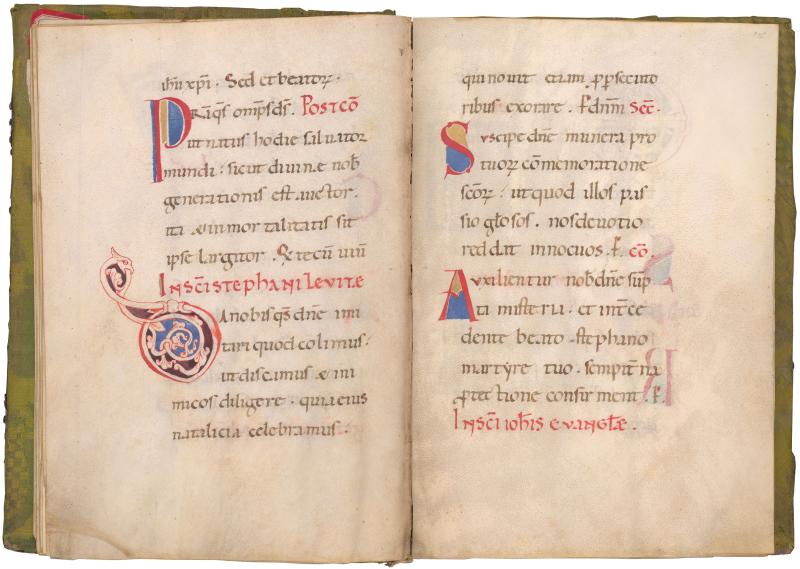 ihu xpi. Sed et beatoꝝ.
Pra q̄s omp̄s d̄s. Postcō
ut natus hodie saluator
mundi. sicut diuinę nob̄
generationis est auctor.
ita & inmortalitatis sit
ipse largitor. Q tecū uiū
In sc̄i stephani levitę
Da nobis q̄s dn̄e imi
tari quod colimus.
ut discamus & ini
micos diligere. quia eius
natalicia celebramus.
qui nouit etiam ꝓ persecuto
ribus exorare. ꝑ dn̄m Sec̄.
Suscipe dn̄e munera pro
tuoꝝ cōmemoratione
sc̄oꝝ. ut quod illos pas
sio gl̄osos. nos deuotio
reddat innocuos. ꝑ. cō.
Auxilientur nob̄ dn̄e sūp
ta misteria. et int̄ce
dente beato stephano
martyre tuo. sempit̄na
ꝓtectione confirment. ꝑ.
In sc̄i iohis evangl̄ę.